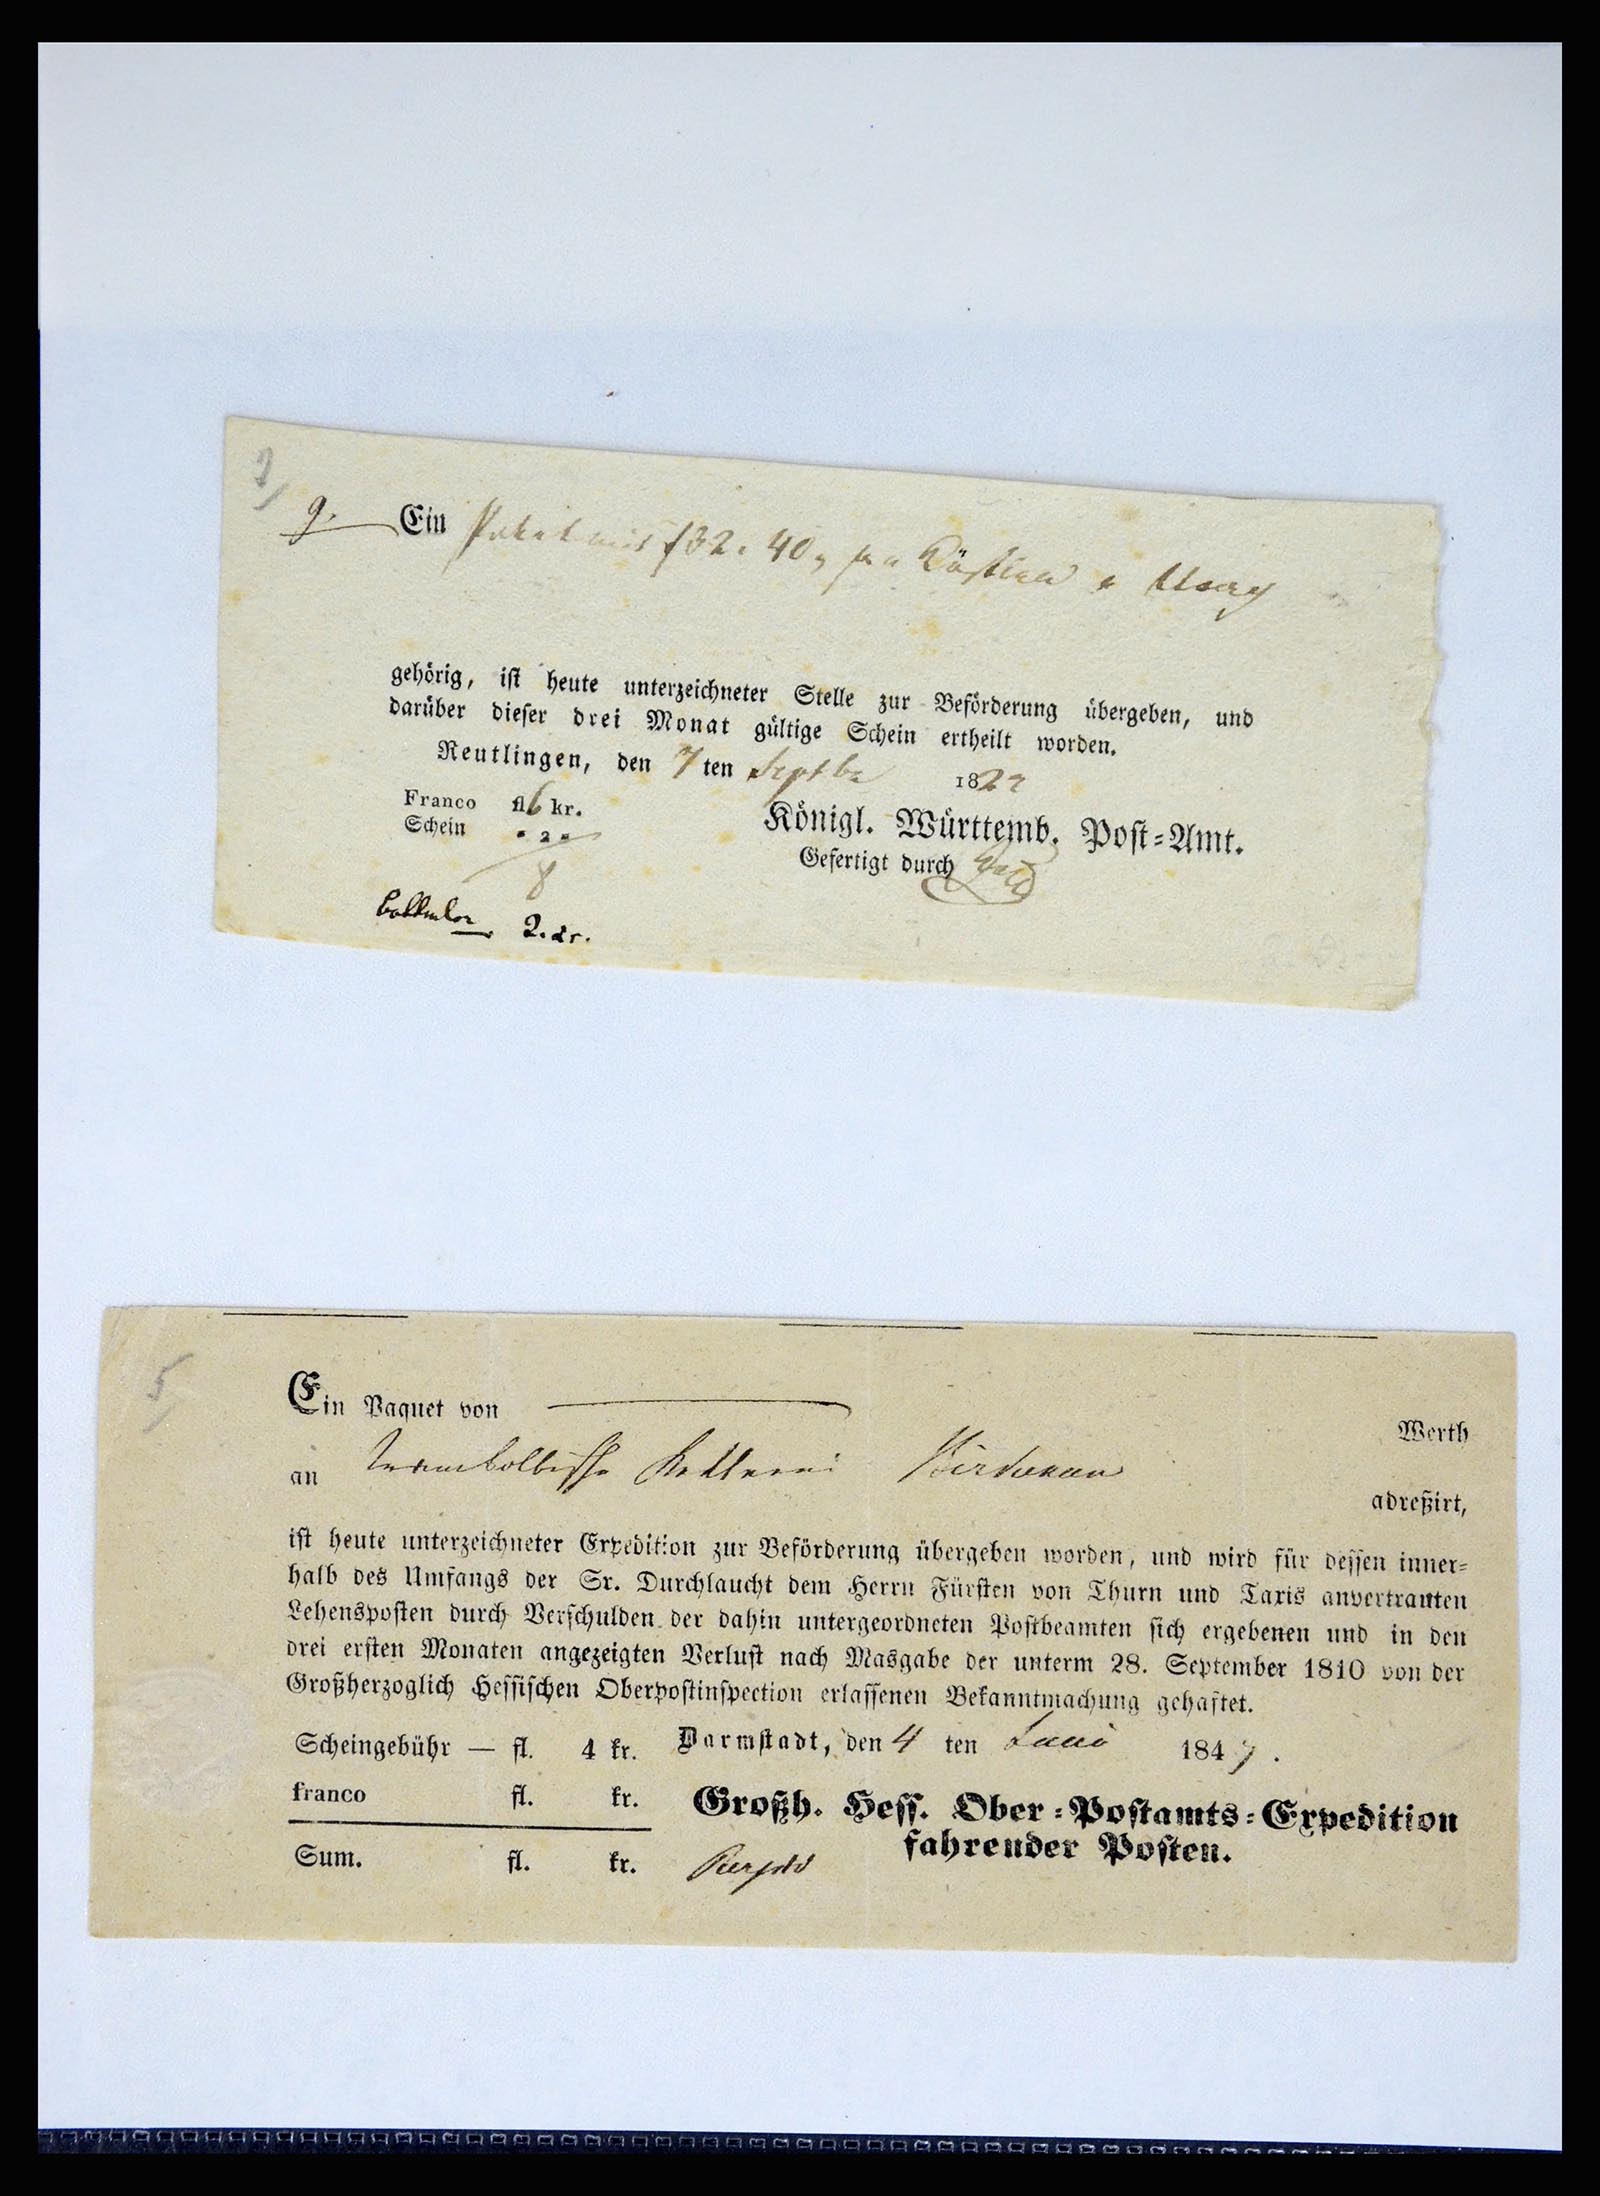 9. Ein f 32. 40
gehörig, ist heute unterzeichneter Stelle zur Beförderung übergeben, und
darüber dieser drei Monat gültige Schein ertheilt worden.
Reutlingen, den 7 ten Septbr 182
Franco fl 6 kr.
Schein " 2 "
8
Königl. Württemb. Post-Amt.
Gefertigt durch
2. kr.
5
Ein Paquet von Werth
an adreßirt,
ist heute unterzeichneter Expedition zur Beförderung übergeben worden, und wird für dessen inner-
halb des Umfangs der Sr. Durchlaucht dem Herrn Fürsten von Thurn und Taxis anvertrauten
Lehensposten durch Verschulden der dahin untergeordneten Postbeamten sich ergebenen und in den
drei ersten Monaten angezeigten Verlust nach Masgabe der unterm 28. September 1810 von der
Großherzoglich Hessischen Oberpostinspection erlassenen Bekanntmachung gehaftet.
Scheingebühr — fl. 4 kr. Darmstadt, den 4 ten Juni 1847.
franco fl. kr.
Großh. Hess. Ober-Postamts-Expedition
fahrender Posten.
Sum. fl. kr.